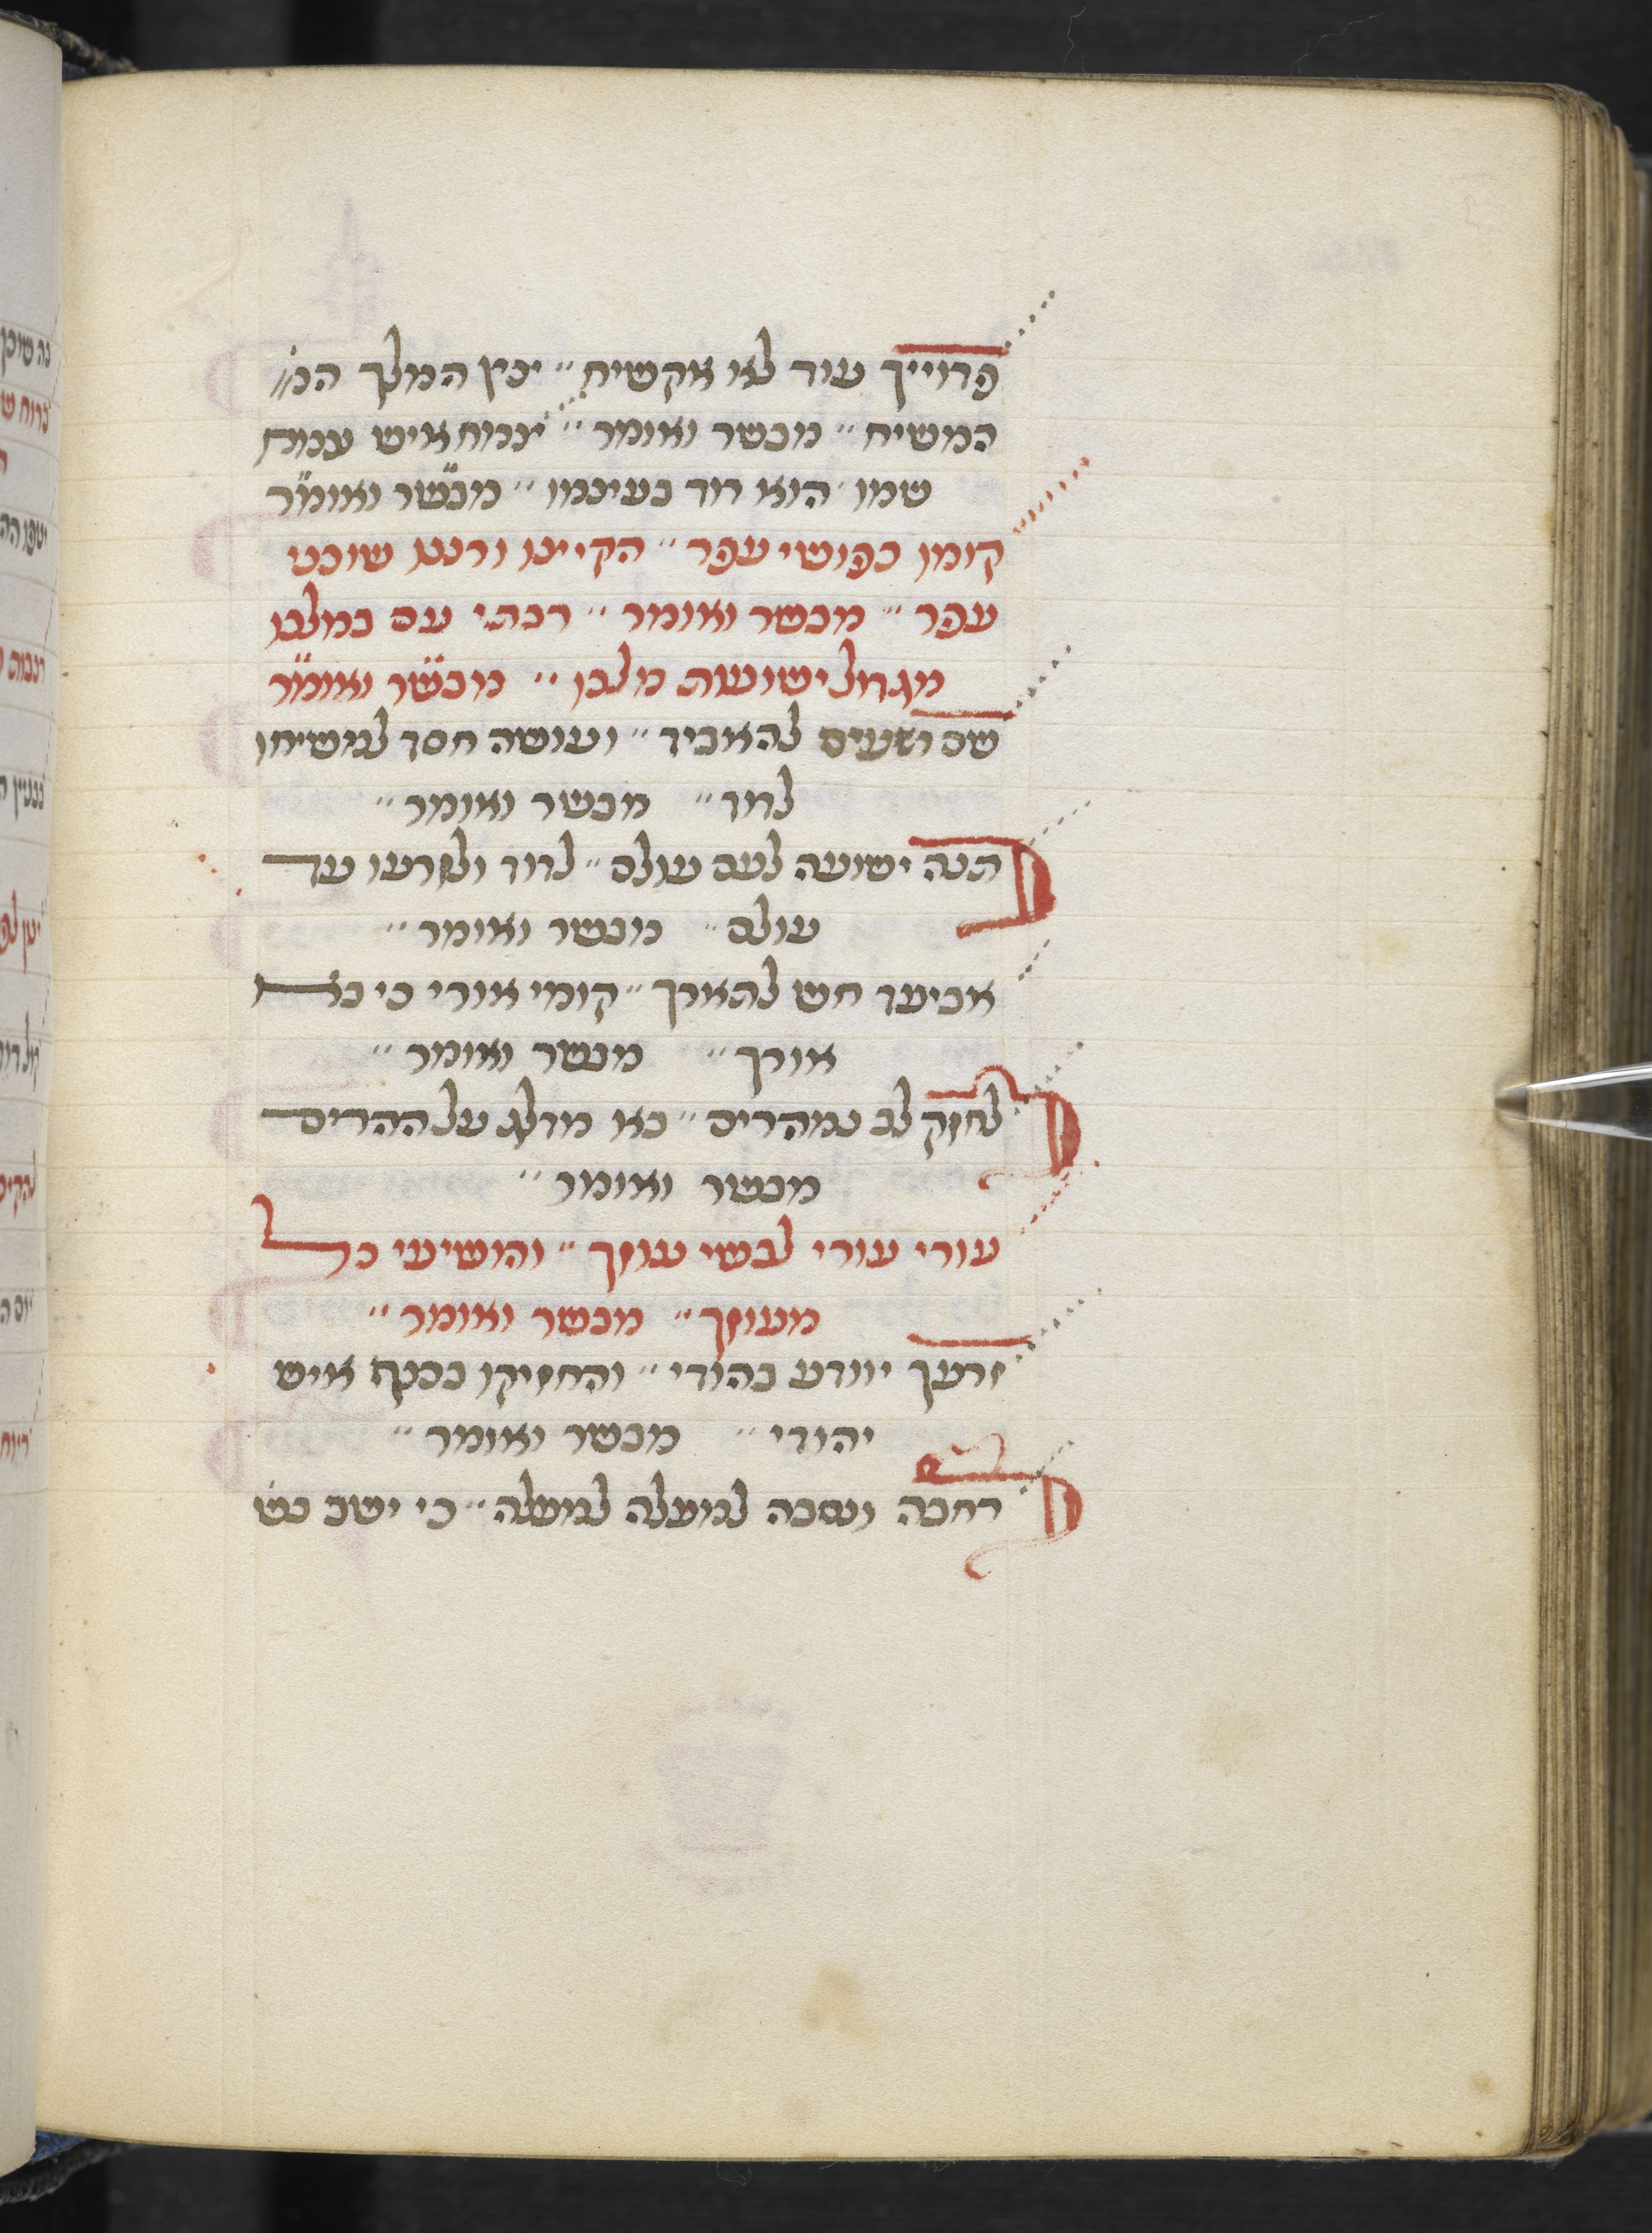 פדוייך עוד לא אקשיח״ יכין המלך המ
המשיח״ מבשר ואומר״ יצמח איש צמח
שמו הוא דוד בעצמו״ מבשר ואומר
קומו כפושי עפר״ הקיצו ורננו שוכני
עפר״ מבשר ואומר״ רבתי עם במלכו
מגדול ישועות מלכו״ מבשר ואומר
שם רשעים להאביד״ ועושה חסד למשיחו
לדוד״ מבשר ואומר״
תנה ישועה לעם עולם״ לדוד ולזרעו עד
עולם״ מבשר ואומר״
אביעד חש להארך״ קומי אורי כי בא
אורך״ מבשר ואומר״
לחזק לב נמהרים״ בא מדלג על ההרים
מבשר ואומר״
עורי עורי לבשי עוזך״ והושיעי כל
מעוזך״ מבשר ואומר״
זרעך יוודע בהודי״ והחזיקו בכנף איש
יהודי״ מבשר ואומר״
רחבה ונסבה למעלה למעלה״ כי ישב בש